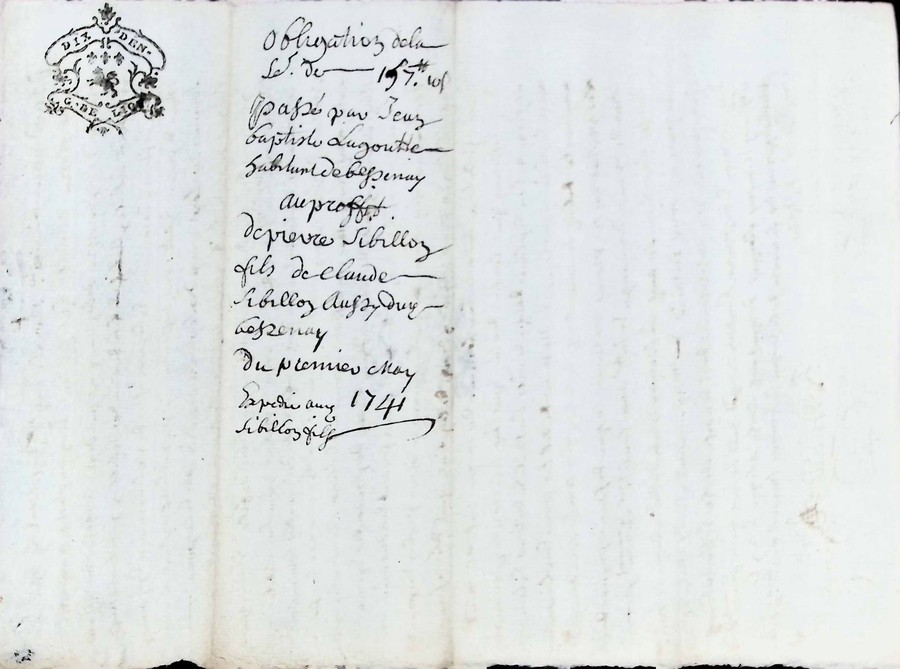 DIX. DEN.
G. DE LION
Obligation dela
So.e De 157.tt 10s
passé par Jean
baptiste Lagoutte
habitant de bessenay
au proffit
de pierre Sibillon
fils de Claude
Sibillon Aussy duy
bessenay
Du premier May
Expedié aud 1741
Sibillon fils